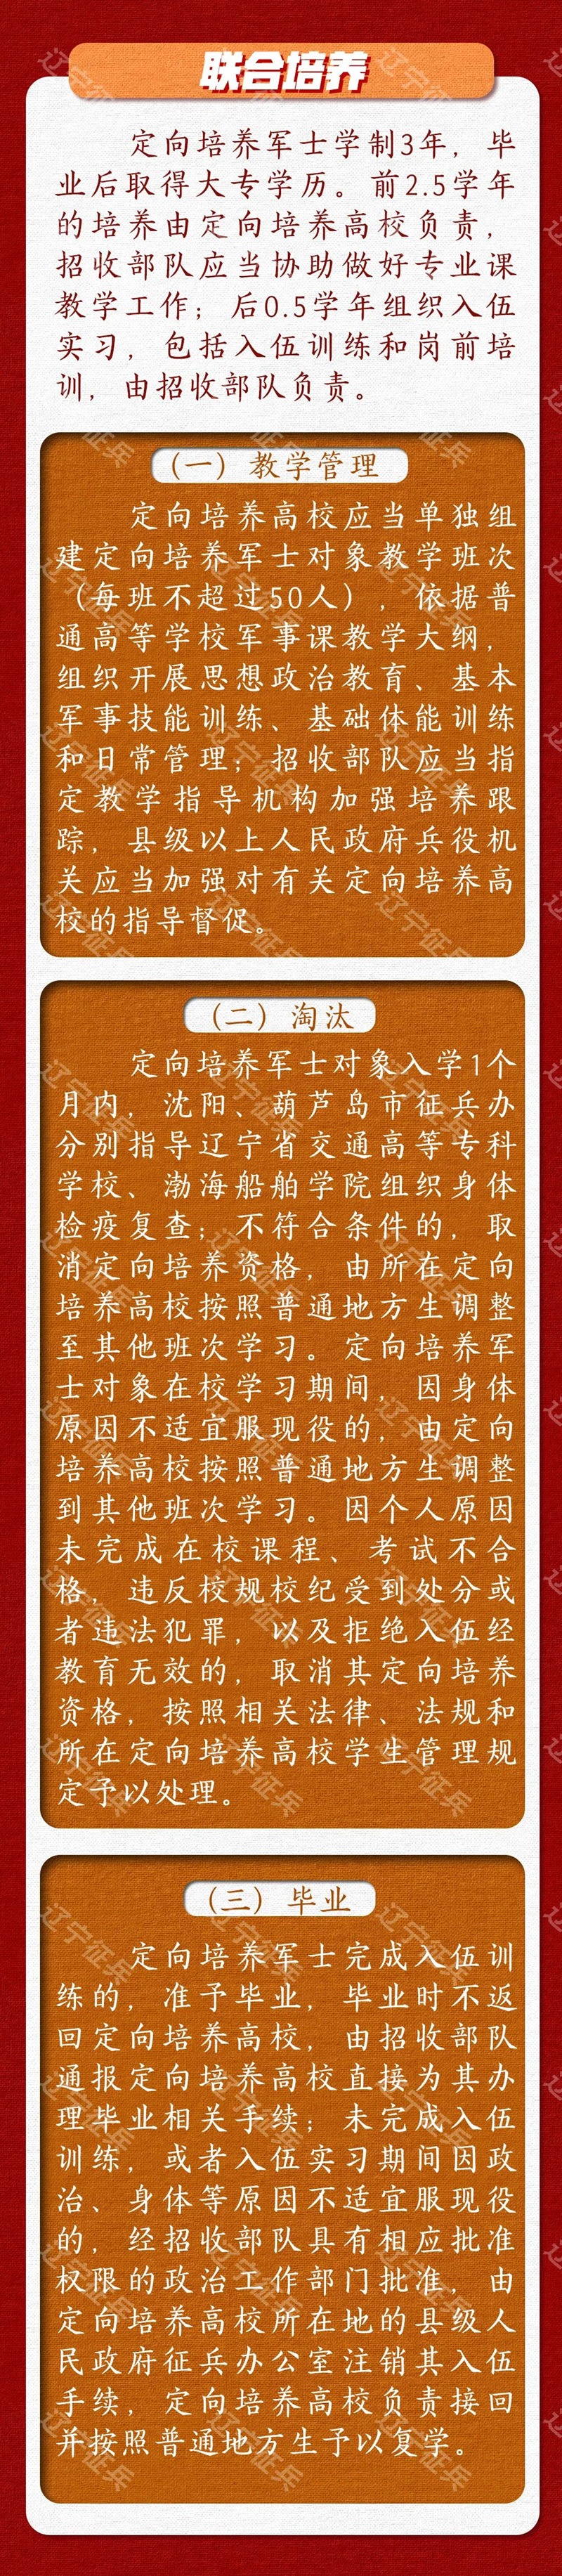 联合培养
定向培养军士学制3年，毕
业后取得大专学历。前2.5学年
的培养由定向培养高校负责，
招收部队应当协助做好专业课
教学工作；后0.5学年组织入伍
实习，包括入伍训练和岗前培
训，由招收部队负责。
（一）教学管理
定向培养高校应当单独组
建定向培养军士对象教学班次
（每班不超过50人），依据普
通高等学校军事课教学大纲，
组织开展思想政治教育、基本
军事技能训练、基础体能训练
和日常管理；招收部队应当指
定教学指导机构加强培养跟
踪，县级以上人民政府兵役机
关应当加强对有关定向培养高
校的指导督促。
（二）淘汰
定向培养军士对象入学1个
月内，沈阳、葫芦岛市征兵办
分别指导辽宁省交通高等专科
学校、渤海船舶学院组织身体
检疫复查；不符合条件的，取
消定向培养资格，由所在定向
培养高校按照普通地方生调整
至其他班次学习。定向培养军
士对象在校学习期间，因身体
原因不适宜服现役的，由定向
培养高校按照普通地方生调整
到其他班次学习。因个人原因
未完成在校课程、考试不合
格，违反校规校纪受到处分或
者违法犯罪，以及拒绝入伍经
教育无效的，取消其定向培养
资格，按照相关法律、法规和
所在定向培养高校学生管理规
定予以处理。
（三）毕业
定向培养军士完成入伍训
练的，准予毕业，毕业时不返
回定向培养高校，由招收部队
通报定向培养高校直接为其办
理毕业相关手续；未完成入伍
训练，或者入伍实习期间因政
治、身体等原因不适宜服现役
的，经招收部队具有相应批准
权限的政治工作部门批准，由
定向培养高校所在地的县级人
民政府征兵办公室注销其入伍
手续，定向培养高校负责接回
并按照普通地方生予以复学。
辽宁征兵